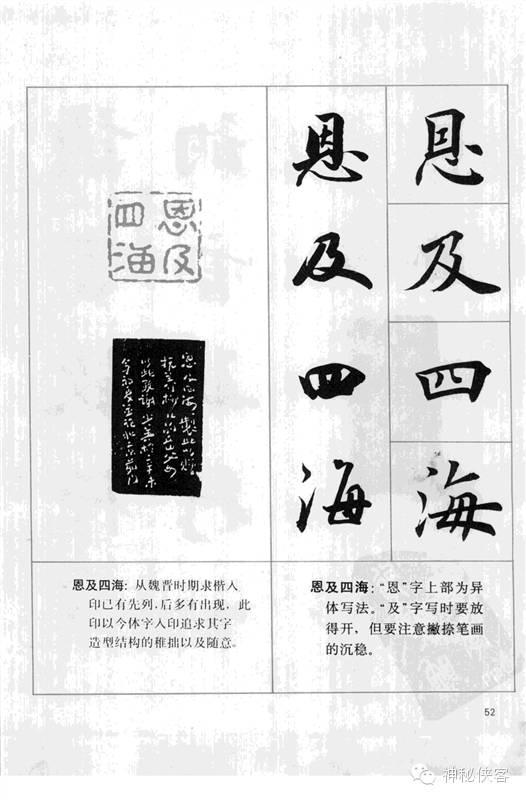 恩及四海
恩及四海
恩及
四海
恩及四海：从魏晋时期隶楷入
印已有先列，后多有出现，此
印以今体字入印追求其字
造型结构的稚拙以及随意。
恩及四海：“恩”字上部为异
体写法。“及”字写时要放
得开，但要注意撇捺笔画
的沉稳。
52
神秘侠客